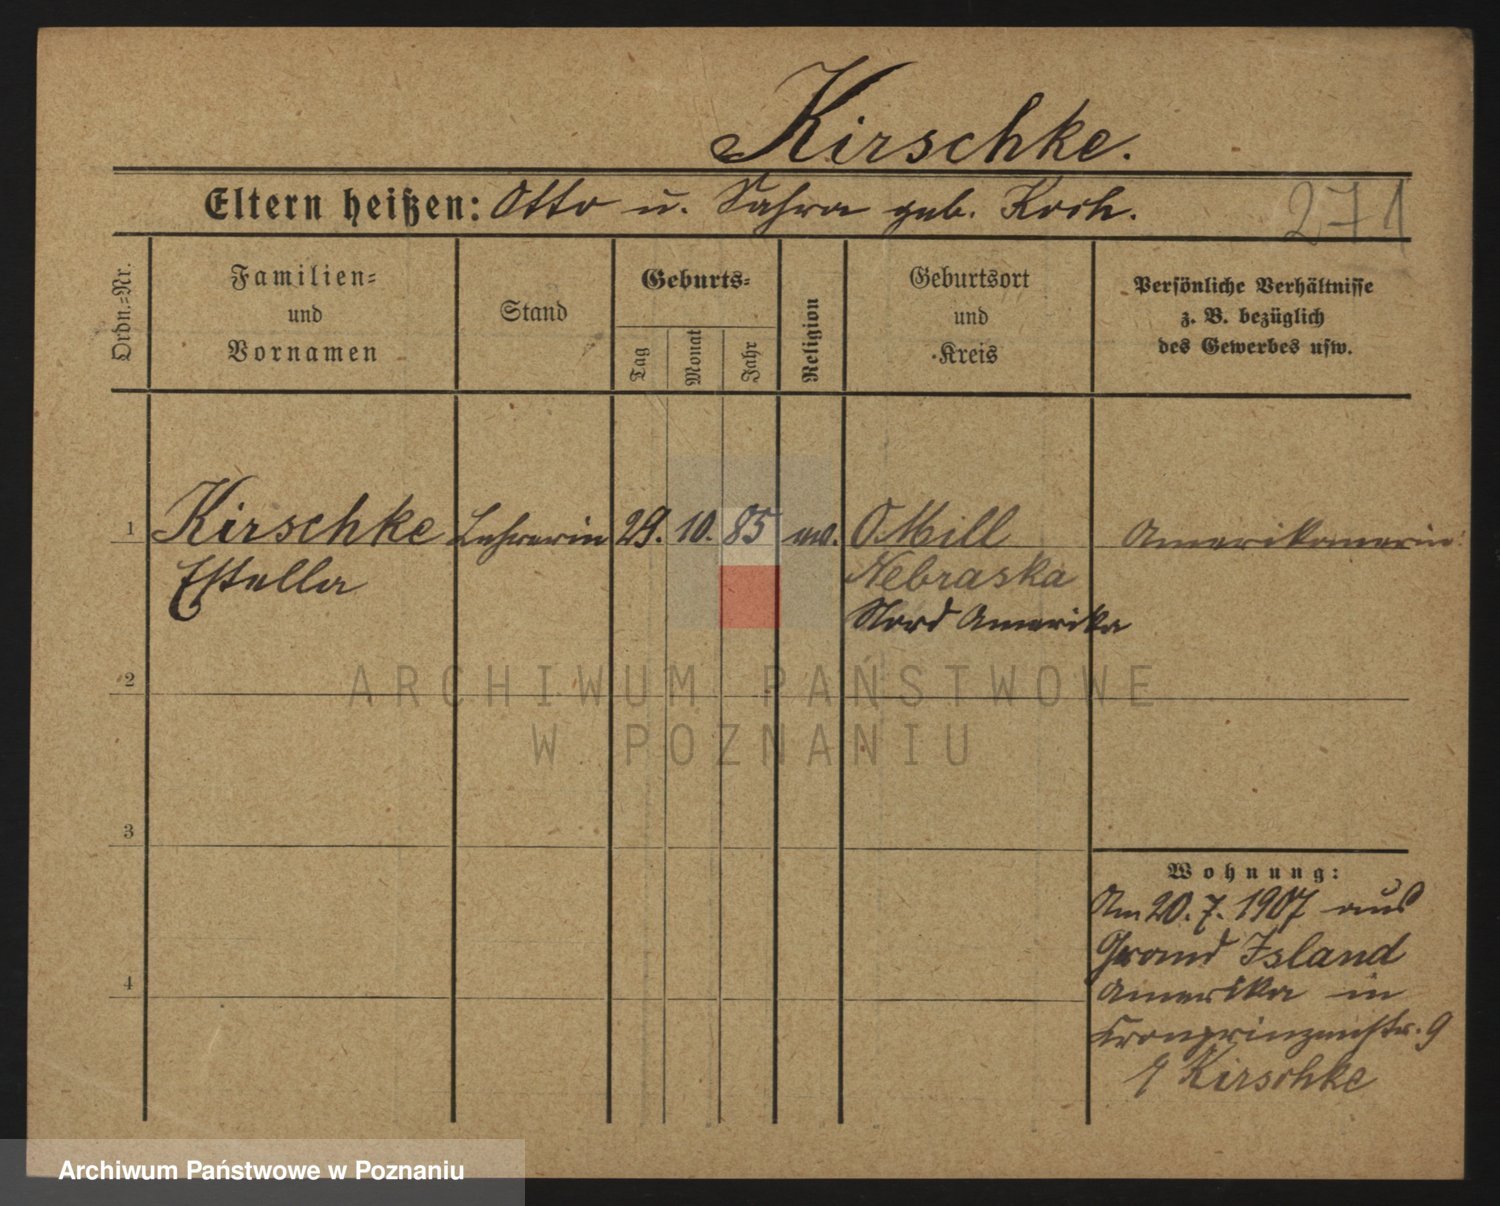 Kirschke.
Eltern heißen: Otto u. Sahra geb. Koch.
271
Ordn.-Nr.
Familien- und Vornamen
Stand
Geburts-
Tag
Monat
Jahr
Religion
Geburtsort und Kreis
Persönliche Verhältnisse z. B. bezüglich des Gewerbes usw.
1 Kirschke Lehrerin 29. 10. 85 ev. OMill Amerikanerin
Estella Nebraska
Nord Amerika
2
ARCHIWUM PAŃSTWOWE
W POZNANIU
3
Wohnung:
Am 20. 7. 1907 aus
Grand Island
4
Amerika in
Kronprinzenstr. 9
Kirschke
Archiwum Państwowe w Poznaniu